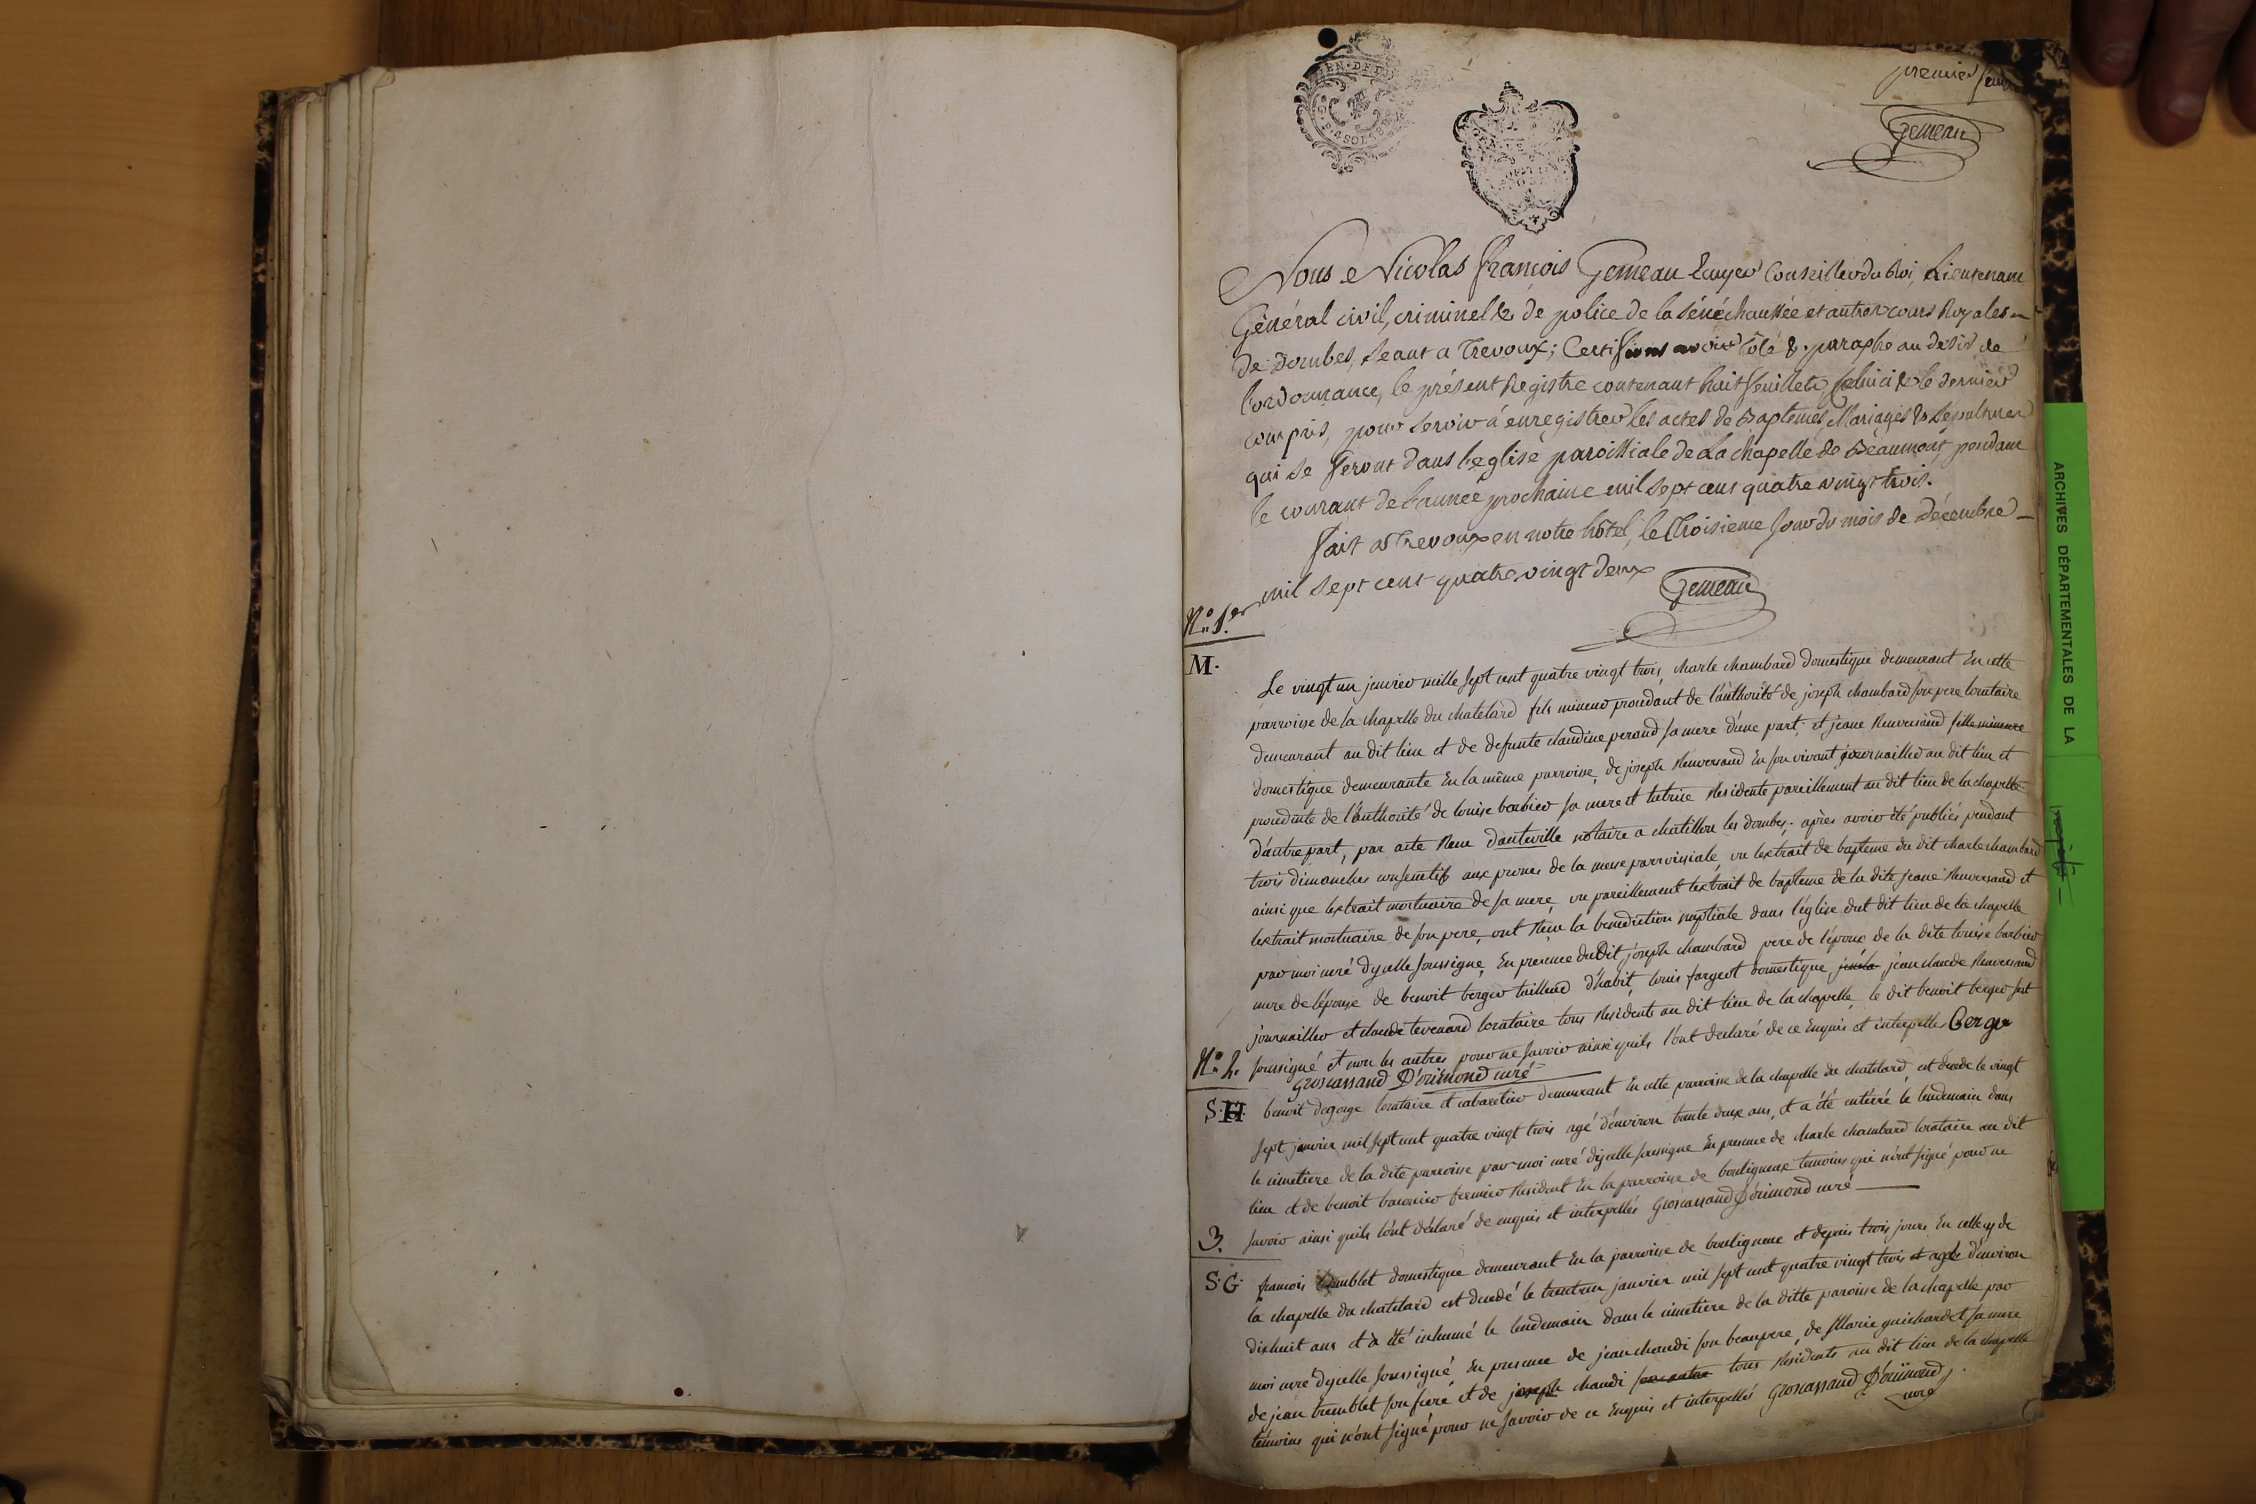 premier feuillet
Gemeau
Nous Nicolas françois Gemeau Ecuyer Conseiller du Roi, Lieutenant
Général civil, criminel & de police de la sénéchaussée et autres cours Royales
de Dombes, séant a Trevoux; Certifions avoir coté & paraphé au desir de
l'ordonnance, le présent Registre contenant huit feuillets celui ci & le dernier
compris, pour servir à enregistrer les actes de Baptemes, Mariages & Sepultures
qui se feront dans l'eglise paroissiale de La chapelle de Beaumont, pendant
le courant de l'année prochaine mil sept cent quatre vingt trois.
fait a Trevoux en notre hôtel, le Troisieme jour du mois de décembre
mil sept cent quatre vingt deux Gemeau
N.o 1.er
M.
Le vingt un janvier mille sept cent quatre vingt trois, charle chambard domestique demeurant En cette
parroisse de la chapelle du chatelard fils mineur procedant de l'authorité de joseph chambard son pere locataire
demeurant au dit lieu et de defunte claudine perond sa mere d'une part, et jeane Renversand fille mineure
domestique demeurante En la même parroisse, de joseph Renversand En son vivant journaillier au dit lieu et
procedante de l'authorité de louise barbier sa mere et tutrice Residente pareillement au dit lieu de la chapelle
d'autre part, par acte Reçu dauteville notaire a chatillon les dombes. après avoir été publiés pendant
trois dimanches consecutifs aux prones de la messe parroissiale, vu lextrait de bapteme du dit charle chambard
ainsi que lextrait mortuaire de sa mere, vu pareillement lextrait de bapteme de la dite jeane Renversand et
lextrait mortuaire de son pere, ont Reçu la benediction nuptiale dans l'église dut dit lieu de la chapelle
par moi curé d'ycelle soussigné, En presence du dit joseph chambard pere de l'époux de la dite louise barbier
mere de l'épouse de benoit berger tailleur d'habit, louis fargeot domestique jean claude Renversand
journaillier et claude tevenard locataire tous Residents au dit lieu de la chapelle, le dit benoit berger s'est
soussigné et non les autres pour ne savoir ainsi quils l'ont declaré de ce Enquis et interpellés Berger
Groscassand D'orimond curé
N.o 2.
S.H
benoit degorge locataire et cabaretier demeurant En cette parroisse de la chapelle du chatelard, est decede le vingt
sept janvier mil sept cent quatre vingt trois agé d'environ trente deux ans, et a été entérré le lendemain dans
le cimetiere de la dite parroisse par moi curé d'ycelle soussigné En presence de charle chambard locataire au dit
lieu et de benoit bournier fermier Resident En la parroisse de bouligneux temoins qui n'ont signé pour ne
savoir ainsi quils l'ont déclaré de enquis et interpellés Groscassand D'orimond curé
3.
S.G.
francois tremblet domestique demeurant En la parroisse de bouligneux et depuis trois jours En celle cy de
la chapelle du chatelard est decedé le trentun janvier mil sept cent quatre vingt trois et agé d'environ
dixhuit ans et a été inhumé le lendemain dans le cimetiere de la ditte paroisse de la chapelle par
moi curé d'ycelle soussigné En presence de jean chaudi son beaupere, de Marie guichardet sa mere
de jean tremblet son frere et de joseph chaudi tous Residents au dit lieu de la chapelle
témoins qui n'ont signé pour ne savoir de ce Enquis et interpellés Groscassand D'orimond
curé
ARCHIVES DÉPARTEMENTALES DE LA